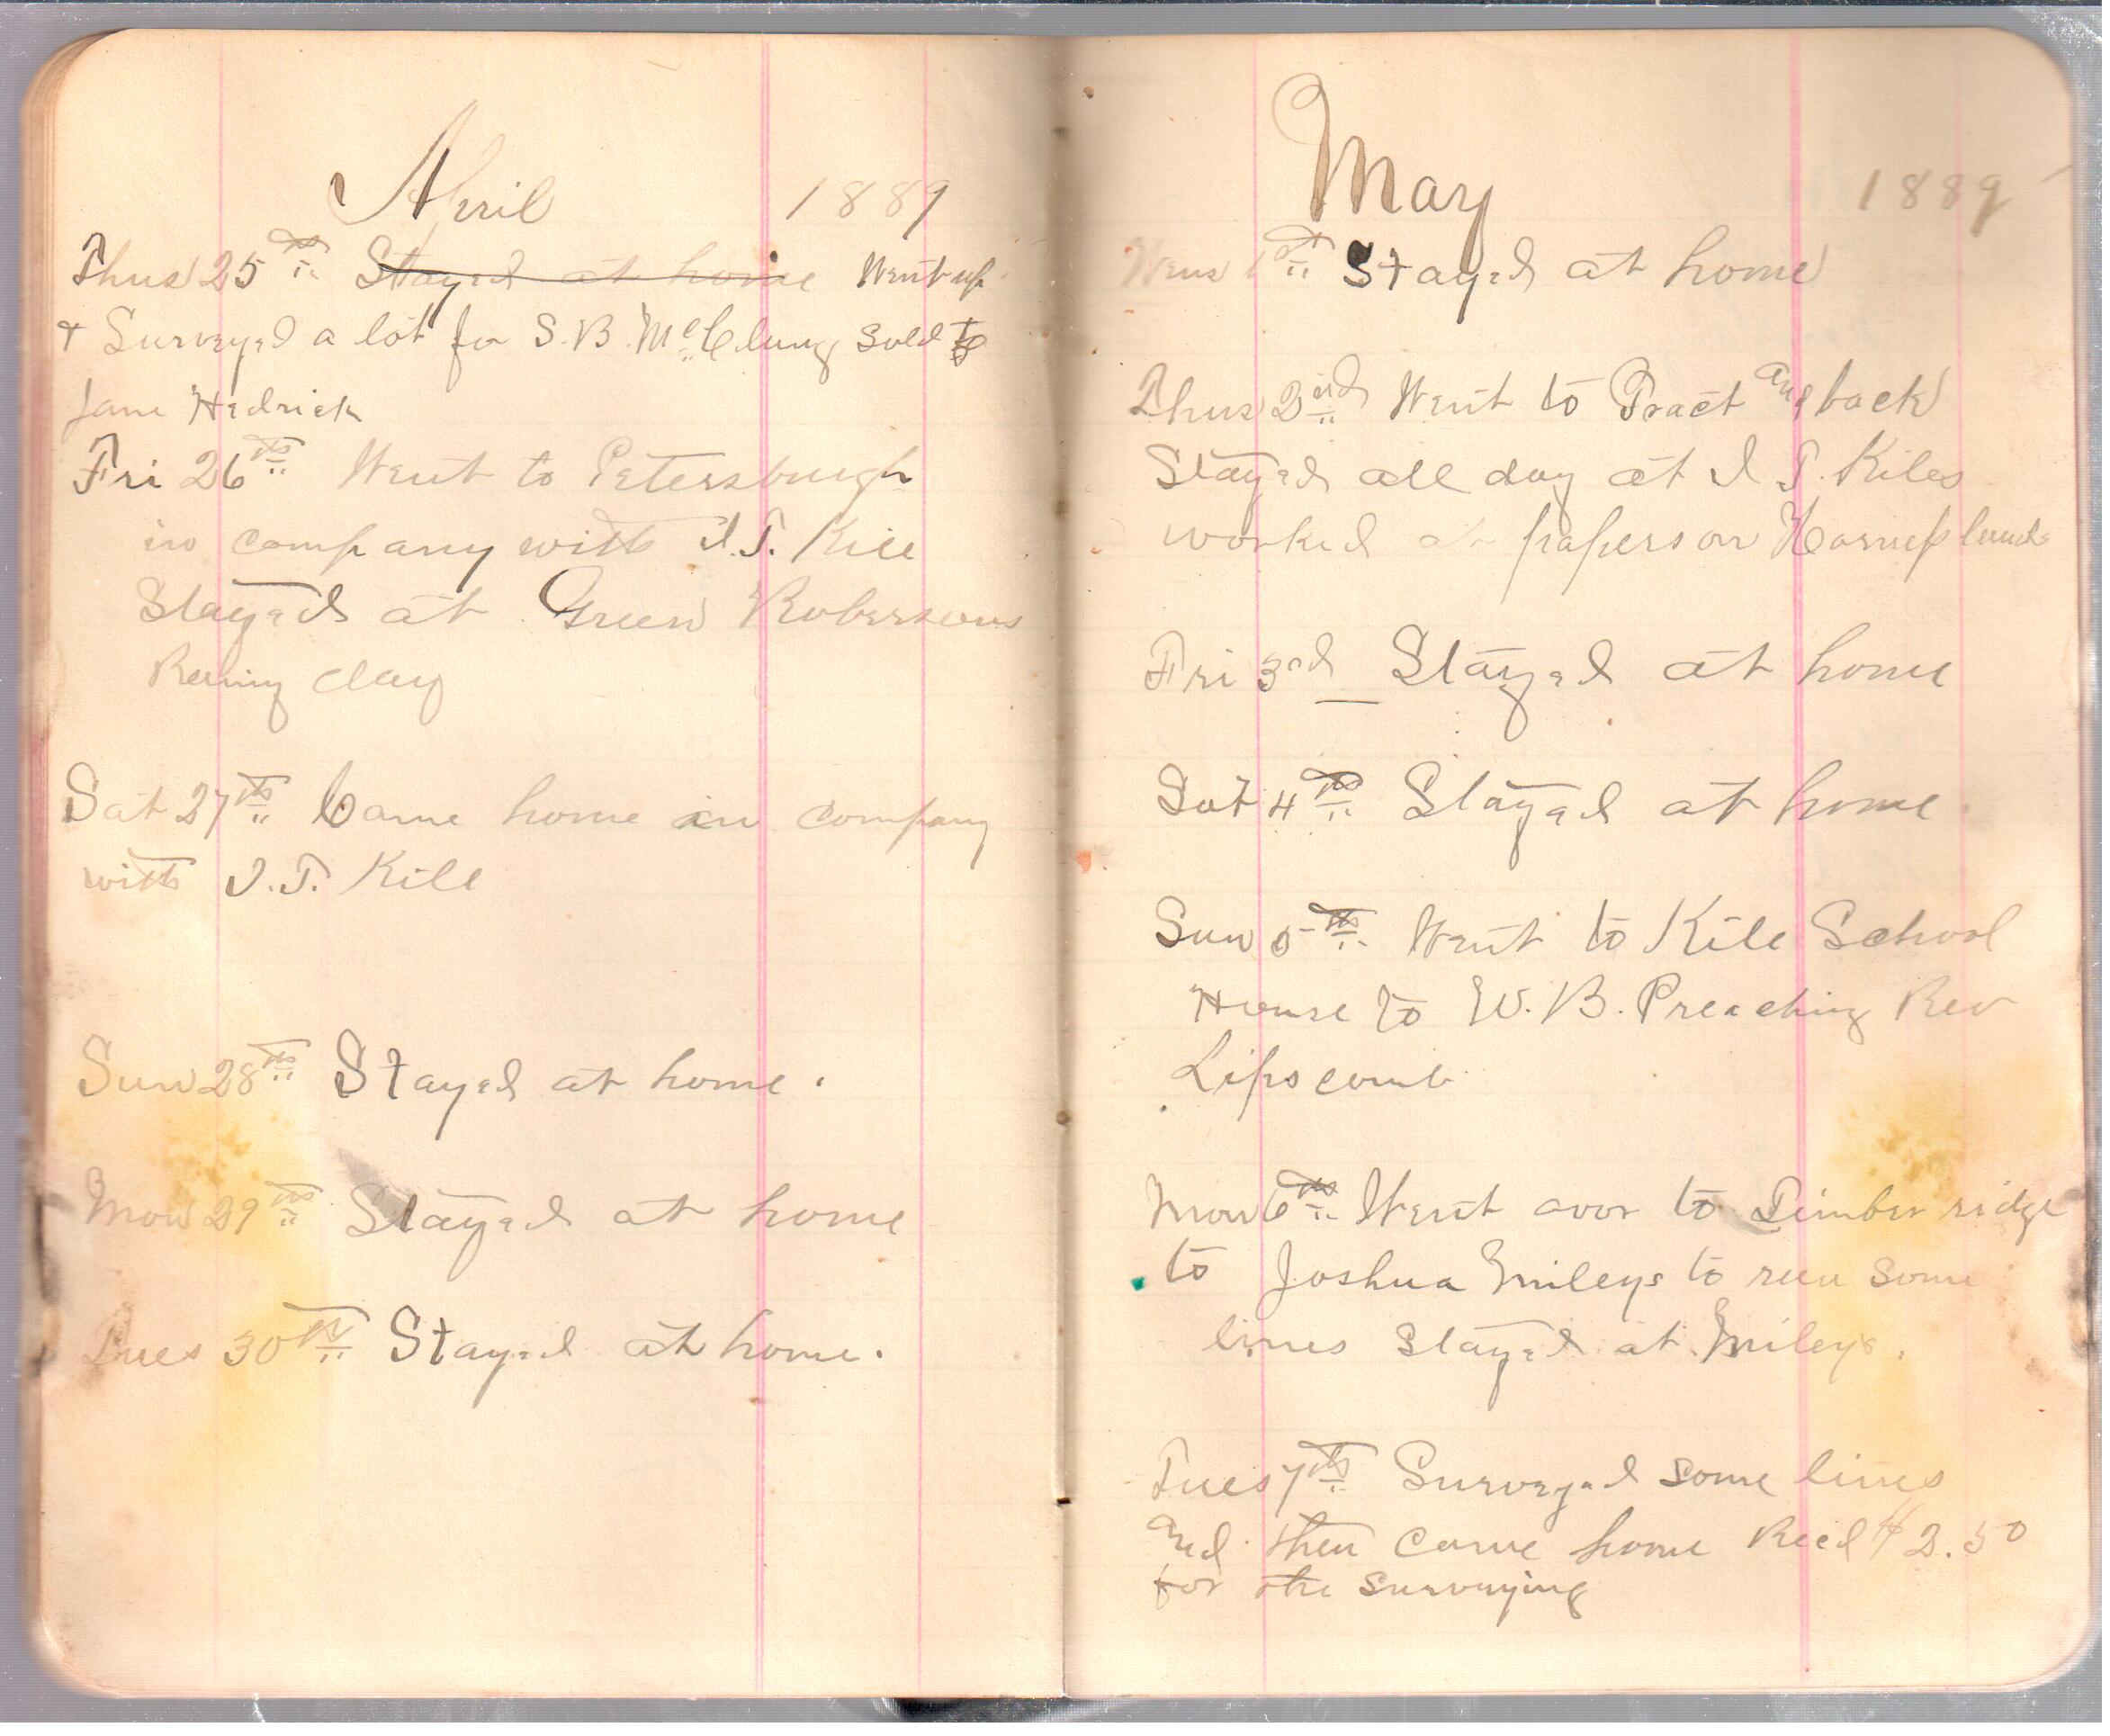 April 1889
Thus 25th Stayed at home Went up
+ Surveyed a lot for S. B. McClung sold to
Jane Hedrick
Fri 26th Went to Petersburgh
in company with I. T. Kile
Stayed at Green Robersons
Rainy day
Sat 27th Came home in company
with I. T. Kile
Sun 28th Stayed at home.
Mon 29th Stayed at home
Tues 30th Stayed at home.
May 1889
Wens 1st Stayed at home
Thus 2nd Went to Tract and back
Stayed all day at I T. Kiles
worked on papers on lands
Fri 3rd Stayed at home
Sat 4th Stayed at home
Sun 5th Went to Kile School
House to W. B. Preaching Rev
Lipscomb
Mon 6th Went over to Timber ridge
to Joshua Smileys to run some
lines Stayed at Smileys.
Tues 7th Surveyed some lines
and then came home Recd $2.50
for the surveying